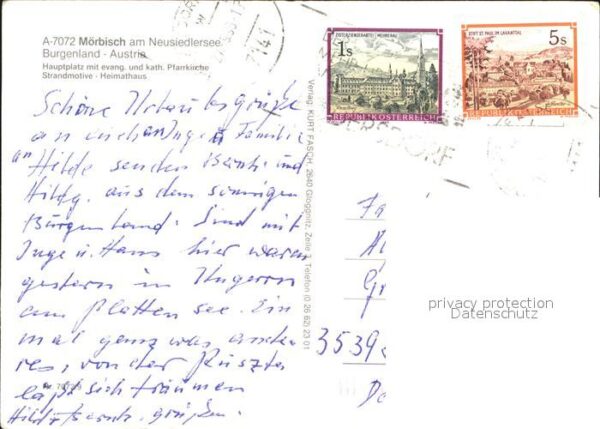 A-7072 Mörbisch am Neusiedlersee
Burgenland · Austria
Hauptplatz mit evang. und kath. Pfarrkirche
Strandmotive · Heimathaus
Schöne Urlaubsgrüße
an euch Familie
Hilde senden und
aus dem sonnigen
Burgenland. Sind mit
Inge u. Hans hier waren
gestern in Ungarn
am Plattensee. Ein
mal ganz was ande
res, von der
läßt sich träumen
grüßen.
Verlag KURT FASCH, 2640 Gloggnitz, Zeile 3, Telefon (0 26 62) 23 01
1s
ZISTERZIENSERABTEI MEHRERAU
REPUBLIK ÖSTERREICH
5s
STIFT ST. PAUL IM LAVANTTAL
REPUBLIK ÖSTERREICH
7141
Fa
Gr
3539
privacy protection
Datenschutz